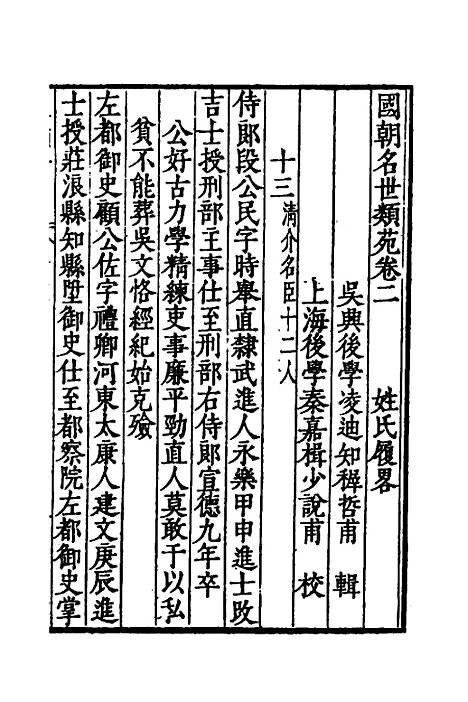 國朝名世類苑卷二　姓氏履畧
吳興後學凌迪知穉哲甫　輯
上海後學秦嘉楫少說甫　校
十三清介名臣十二人
侍郎段公民字時舉直隸武進人永樂甲申進士攺
吉士授刑部王事仕至刑部右侍郎宣德九年卒
公好古力學精練吏事廉平勁直人莫敢于以私
貧不能葬吳文恪經紀始克殮
左都御史顧公佐字禮卿河東太康人建文庚辰進
士授莊浪縣知縣陞御史仕至都察院左都御史掌